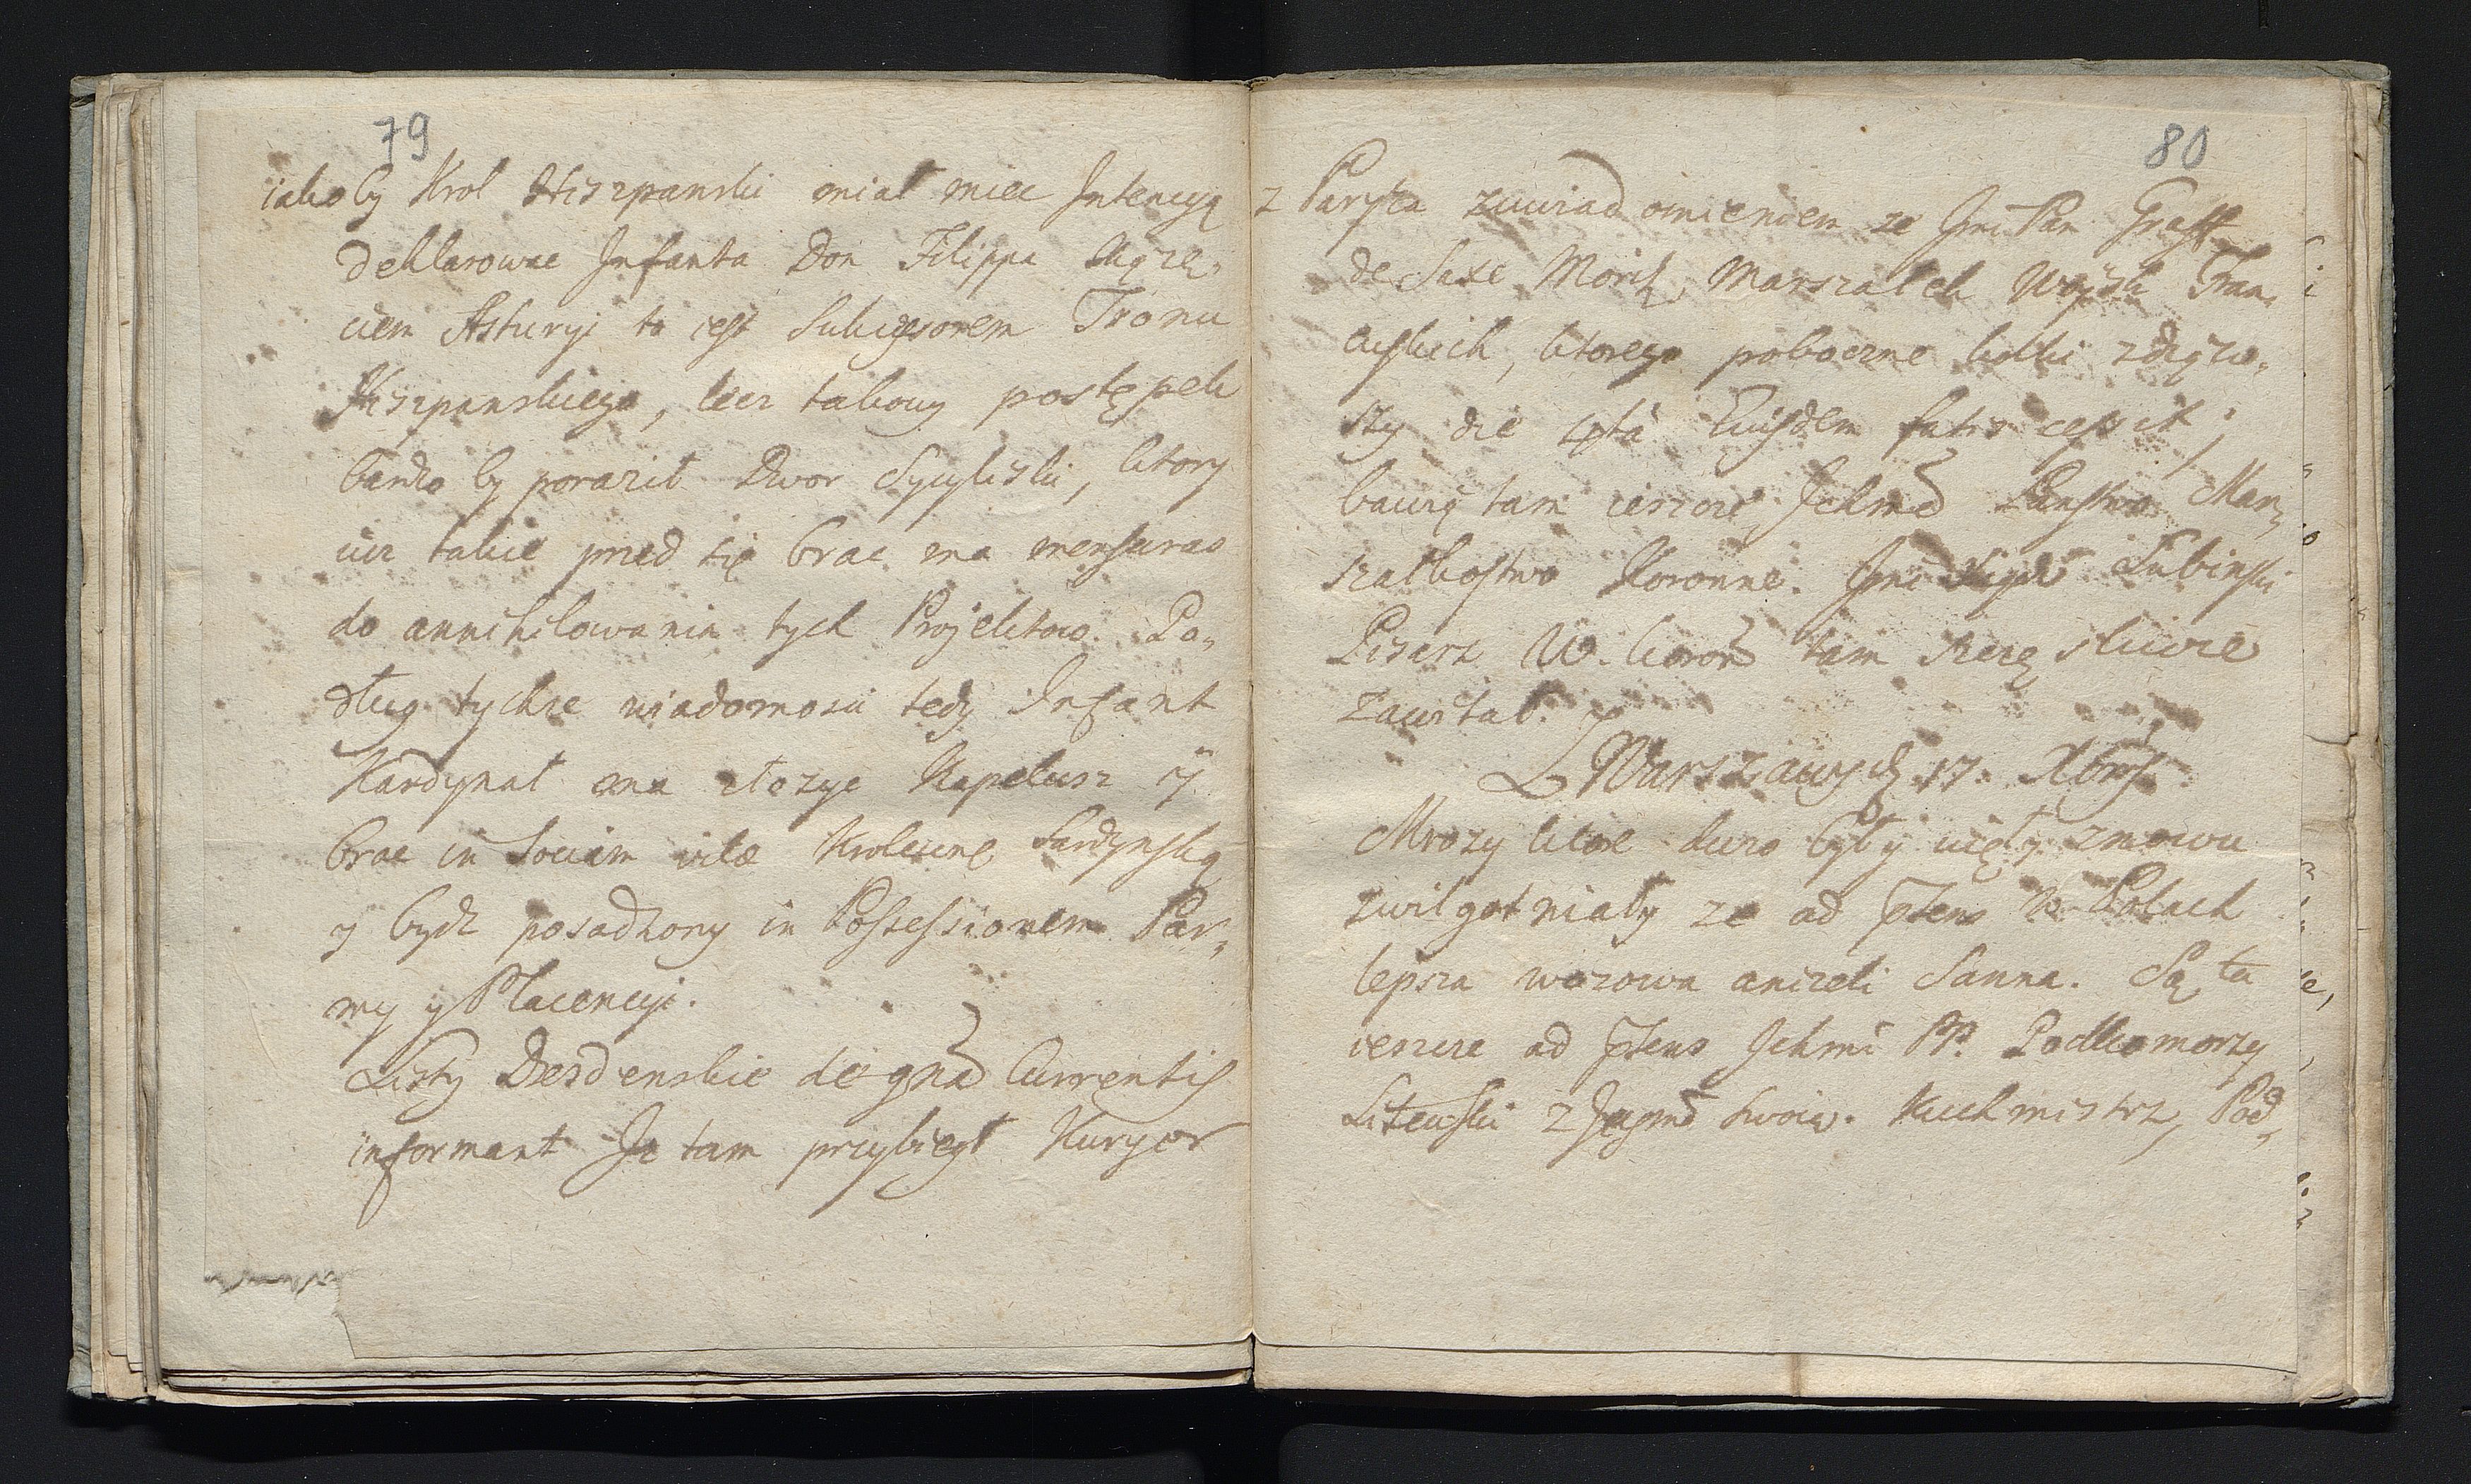 79
iakoby Krol Hiszpanski miał miec Intencyą
deklarowac Infanta Don Filippa Xiąże„
ciem Asturyi to iest Sukcesorem Tronu
Hiszpanskiego, lecz takowy postępek
bardzo by poraził Dwor Sycylijski, ktory
iuz takie przed się brac ma mensuras
do annihilowania tych Projektow. Po„
dług tychze wiadomosci tedy Infant
Kardynał ma złozyc Kapelusz y
brac in Sociam vitæ Krolewnę Sardynską
y bydz posadzony in Possessionem Par„
my y Placencyi.
Listy Drezdenskie de 9na Currentis
informant Ze tam przybiegł Kuryer
80
z Paryża zawiadomieniem ze Jmć Pan Graff
de Saxe Moritz, Marszałek Woysk Fran„
cuskich, ktorego poboczne kolki zdięło„
szy die 4ta Eiusdem fatis cessit;
bawią tam ieszcze Ichmć Panstwo Mar„
szałkostwo Koronne. Jmć Lubinski
Pisarz W. koron tam szczęsliwie
zawitał.
Z Warszawy d. 17. Xbris
Mrozy ktore duzo były zięły znowu
zwilgotniały ze ad pstens w Polach
lepsza wozowa anizeli Sanna. Są tu
ieszcze ad pstens Ichmć PP. Podkomorzy
Litewski z Jeymć Swoią. Kuchmistrz, Pod„